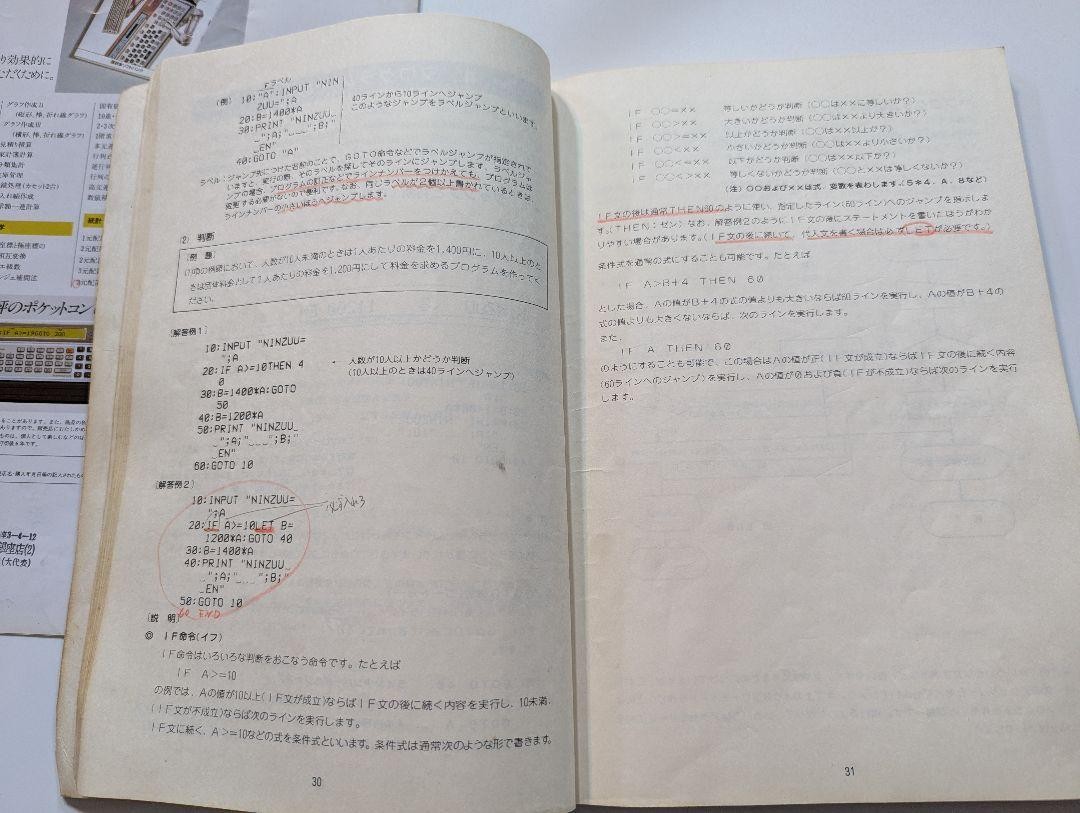 り効果的に
ただくために。
グラフ作成II
(縦形、棒、折れ線グラフ)
グラフ作成III
(横形、棒、折れ線グラフ)
坪のポケットコン
IF A>=10GOTO 200
銀座店(2)
(大代表)
ラベル
(例) 10:"A":INPUT "NIN
ZUU=";A
20:B=1400*A
30:PRINT "NINZUU_
_";A;"___";B;"
_EN"
40:GOTO "A"
40ラインから10ラインへジャンプ
このようなジャンプをラベルジャンプといいます。
ラベル:ジャンプ先につけた名前のことで、GOTO命令などでラベルジャンプが指定されて
いますと、実行の際、そのラベルを探してそのラインにジャンプします。ラベルジャ
ンプの場合、プログラムの訂正などでラインナンバーをつけかえても、プログラムは
変更する必要がないので便利です。なお、同じラベルが2個以上書かれているときは、
ラインナンバーの小さいほうへジャンプします。
(2) 判断
[例 題]
(1)項の例題において、人数が10人未満のときは1人あたりの料金を1,400円に、10人以上のと
きは団体料金として1人あたりの料金を1,200円にして料金を求めるプログラムを作ってく
ださい。
[解答例1]
10:INPUT "NINZUU=
";A
20:IF A>=10THEN 4
0
人数が10人以上かどうか判断
(10人以上のときは40ラインへジャンプ)
30:B=1400*A:GOTO
50
40:B=1200*A
50:PRINT "NINZUU_
_";A;"___";B;"
_EN"
60:GOTO 10
[解答例2]
10:INPUT "NINZUU=
";A
必ず入れる
20:IF A>=10LET B=
1200*A:GOTO 40
30:B=1400*A
40:PRINT "NINZUU_
_";A;"___";B;"
_EN"
50:GOTO 10
60 END
[説 明]
◎ IF命令(イフ)
IF命令はいろいろな判断をおこなう命令です。たとえば
IF A>=10
の例では、Aの値が10以上(IF文が成立)ならばIF文の後に続く内容を実行し、10未満、
(IF文が不成立)ならば次のラインを実行します。
IF文に続く、A>=10などの式を条件式といいます。条件式は通常次のような形で書きます。
30
IF ○○=×× 等しいかどうか判断 (○○は××に等しいか?)
IF ○○>×× 大きいかどうか判断 (○○は××より大きいか?)
IF ○○>=×× 以上かどうか判断 (○○は××以上か?)
IF ○○<×× 小さいかどうか判断 (○○は××より小さいか?)
IF ○○<=×× 以下かどうか判断 (○○は××以下か?)
IF ○○<>×× 等しくないかどうか判断 (○○と××は等しくないか?)
(注) ○○および××は式、変数を表わします。(5*4、A、8など)
IF文の後は通常THEN60のように使い、指定したライン(60ライン)へのジャンプを指示しま
す。(THEN:ゼン) なお、解答例2のようにIF文の後にステートメントを書いたほうがわか
りやすい場合があります。(IF文の後に続いて、代入文を書く場合は必ずLETが必要です。)
条件式を通常の式にすることも可能です。たとえば
IF A>B+4 THEN 60
とした場合、Aの値がB+4の式の値よりも大きいならば60ラインを実行し、Aの値がB+4の
式の値よりも大きくないならば、次のラインを実行します。
また、
IF A THEN 60
のようにすることも可能で、この場合はAの値が正(IF文が成立)ならばIF文の後に続く内容
(60ラインへのジャンプ)を実行し、Aの値が0および負(IFが不成立)ならば次のラインを実行
します。
31